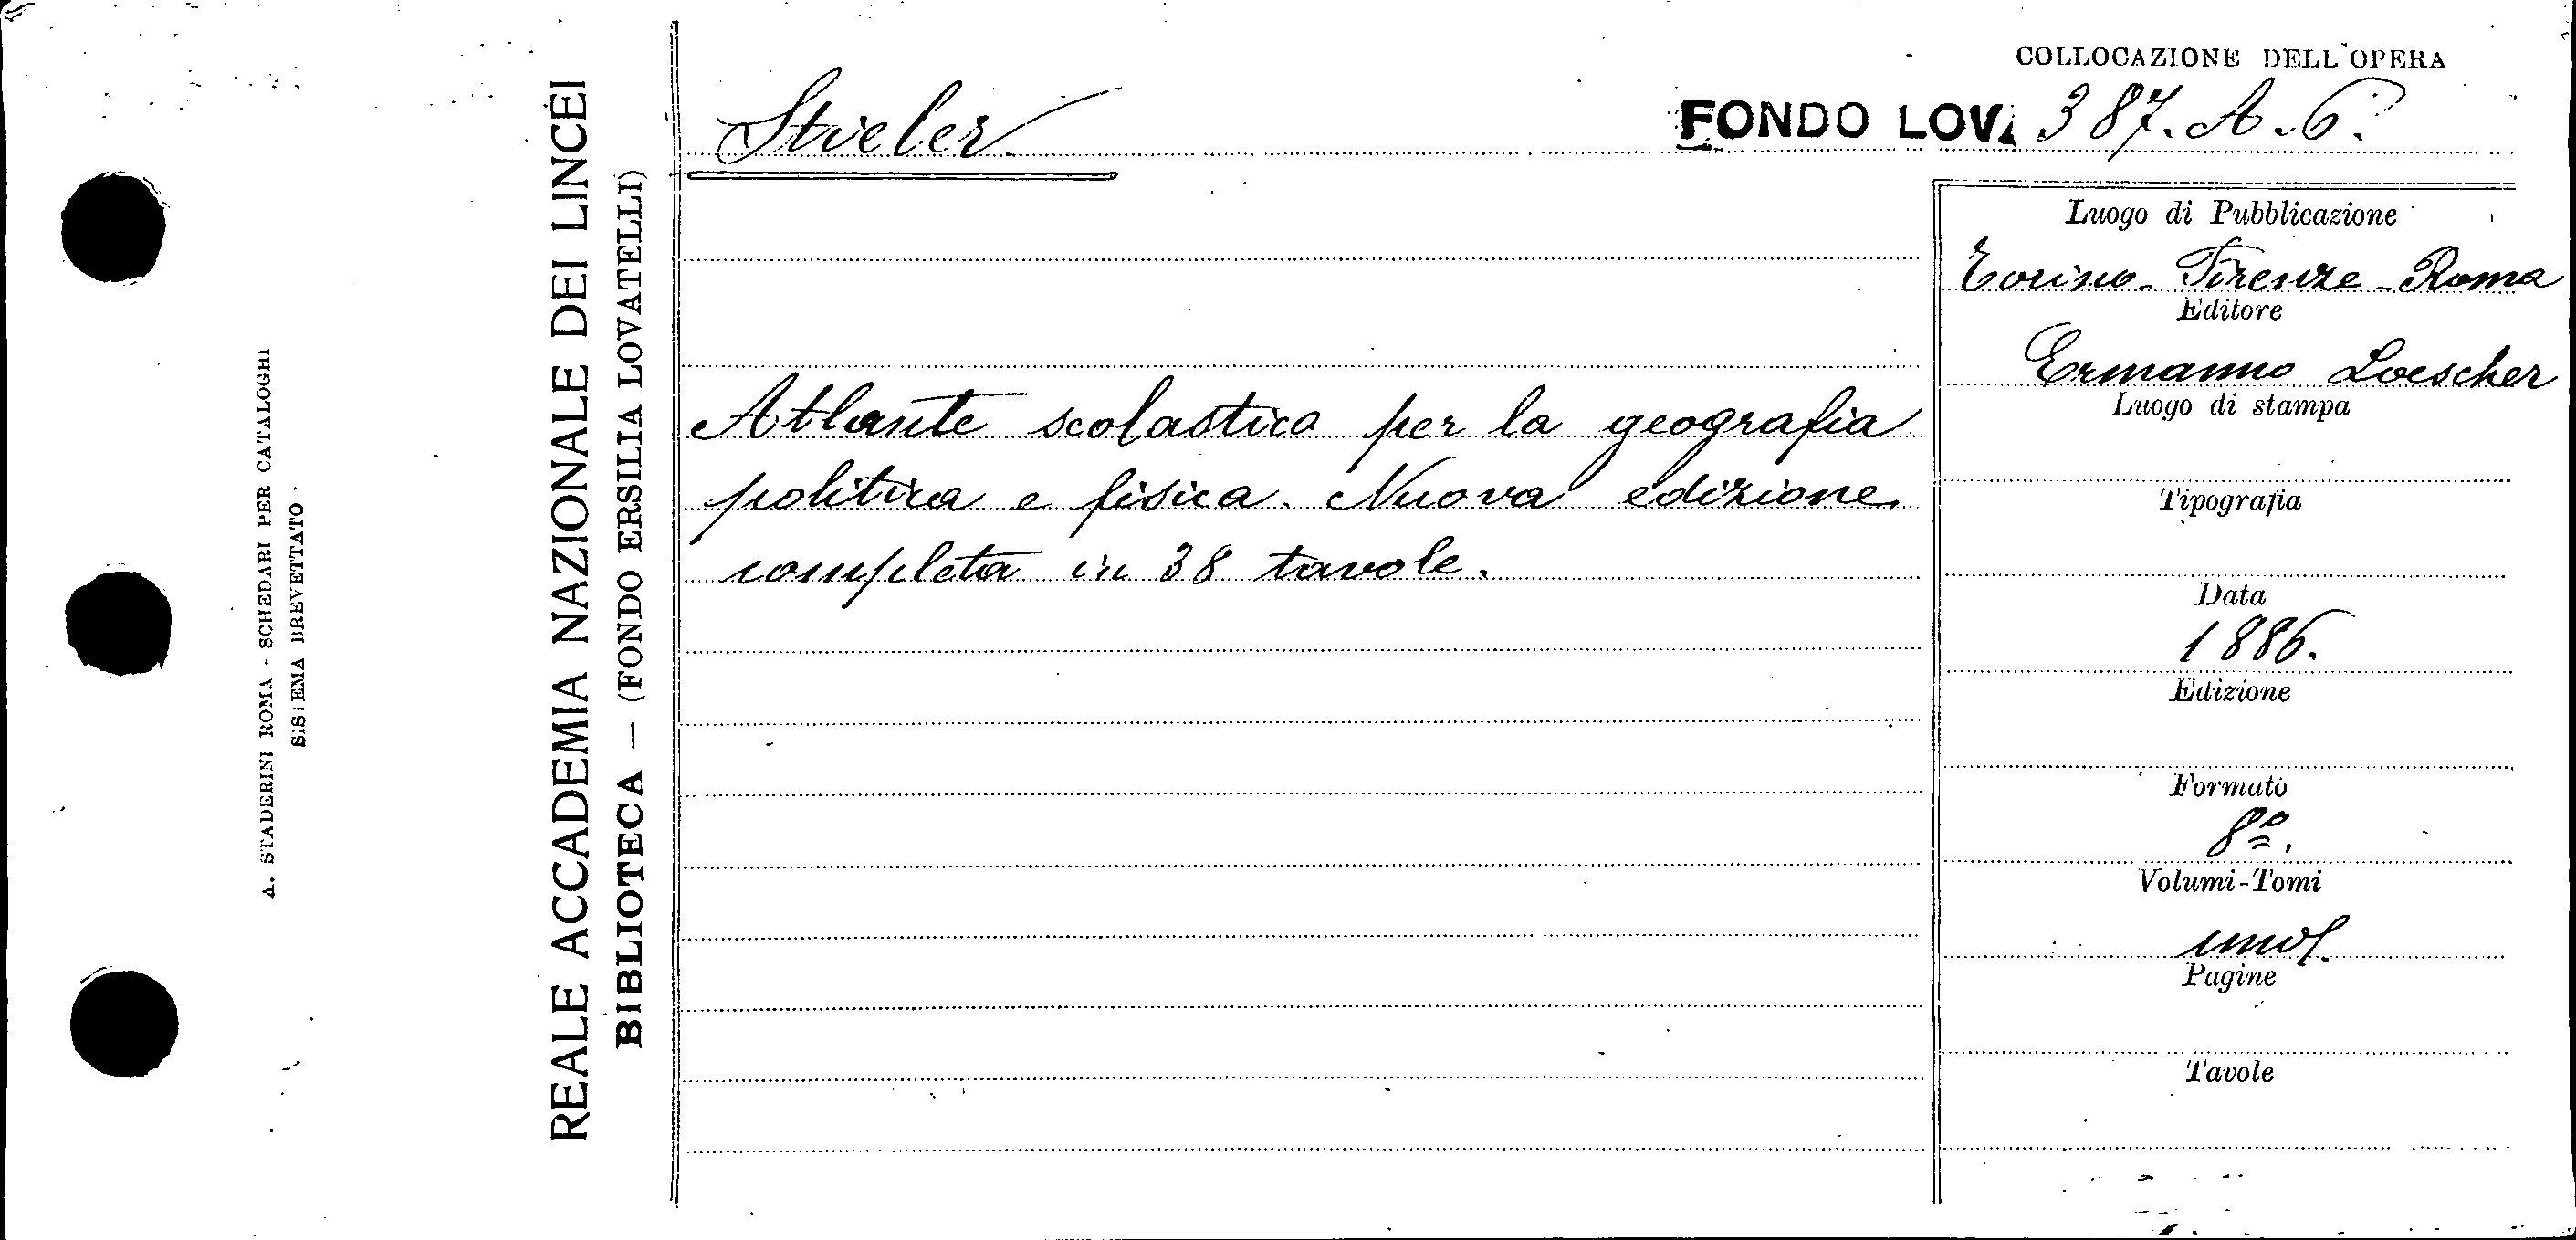 COLLOCAZIONE DELL'OPERA
Stieler
FONDO LOV. 387. A. 6.
REALE ACCADEMIA NAZIONALE DEI LINCEI
BIBLIOTECA — (FONDO ERSILIA LOVATELLI)
A. STADERINI ROMA - SCHEDARI PER CATALOGHI
SISTEMA BREVETTATO
Atlante scolastico per la geografia
politica e fisica. Nuova edizione
completa in 38 tavole.
Luogo di Pubblicazione
Torino - Firenze - Roma
Editore
Ermanno Loescher
Luogo di stampa
Tipografia
Data
1886.
Edizione
Formato
8º.
Volumi-Tomi
Pagine
Tavole